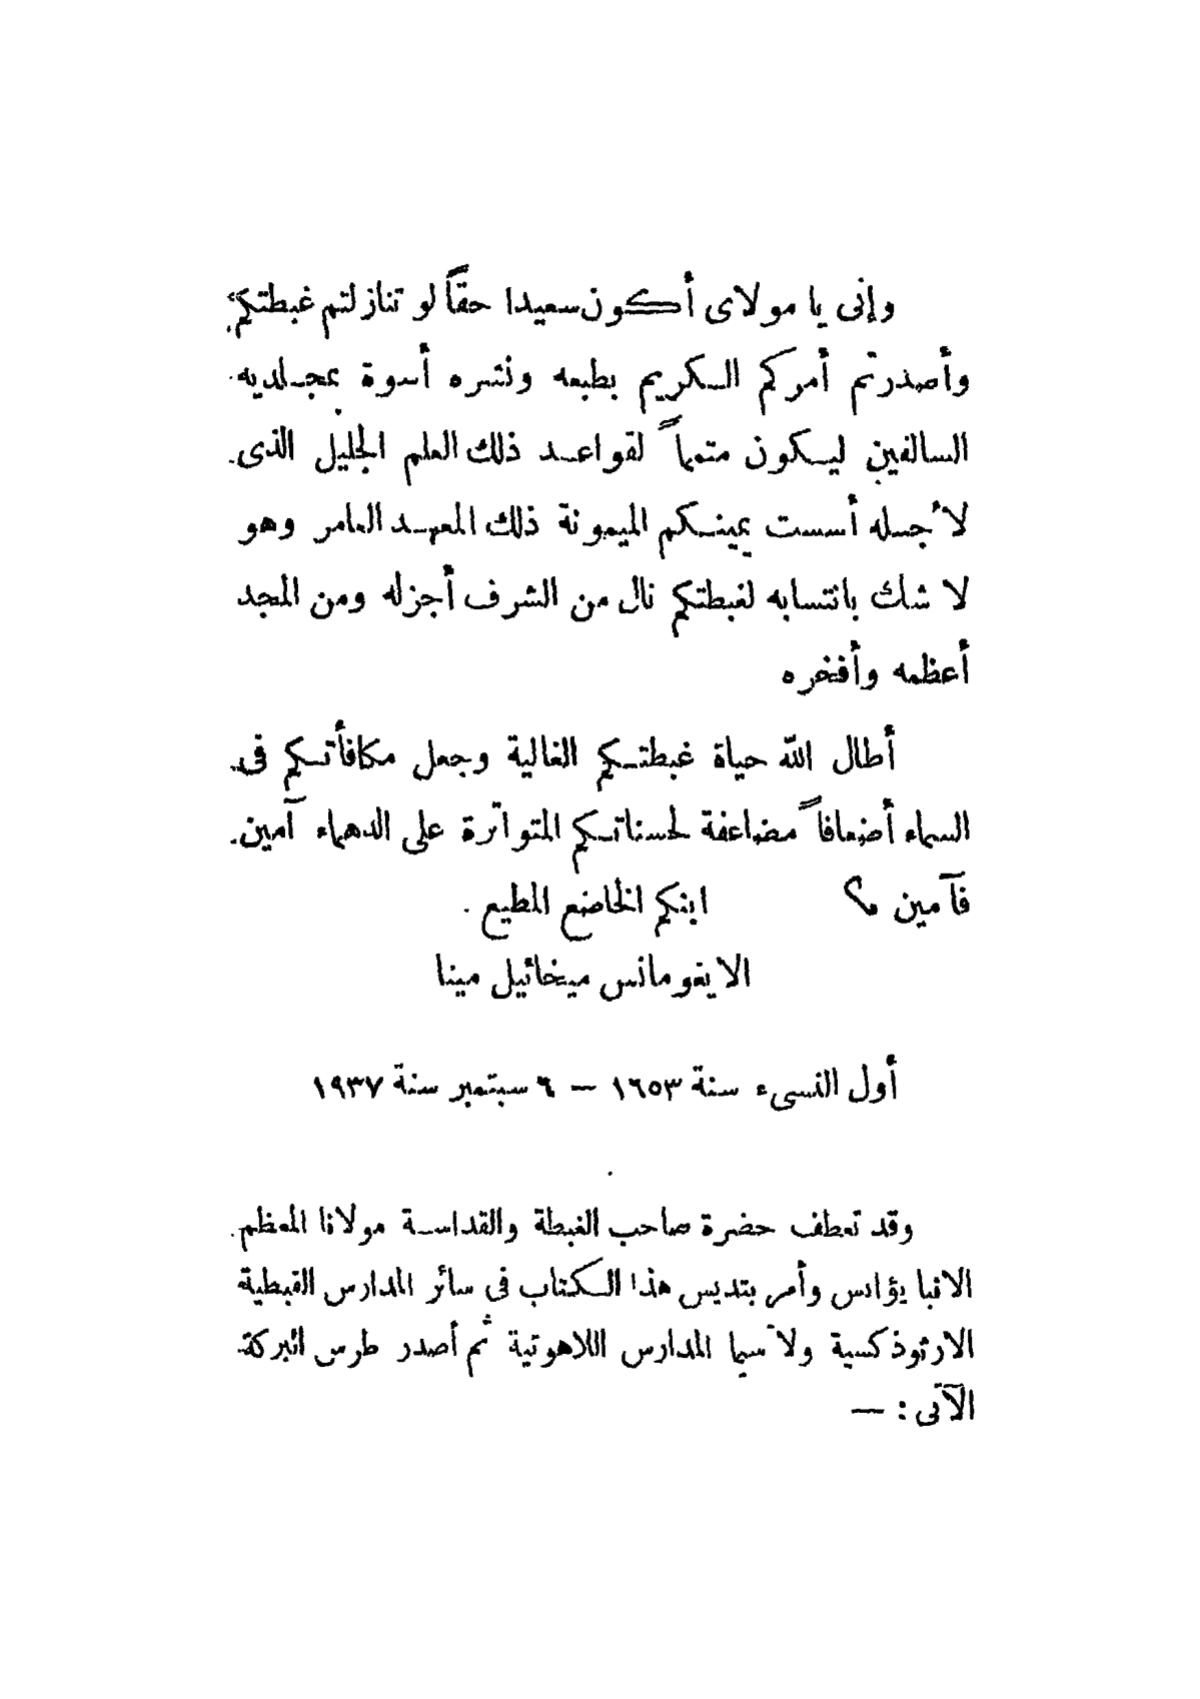 وإنى يا مولاى أكون سعيدا حقاً لو تنازلتم غبطتكم
وأصدرتم أمركم الكريم بطبعه ونشره أسوة بمجلديه
السالفين ليكون متمماً لقواعد ذلك العلم الجليل الذى
لأجله أسست يمينكم الميمونة ذلك المعهد العامر وهو
لا شك بانتسابه لغبطتكم نال من الشرف أجزله ومن المجد
أعظمه وأفخره
أطال الله حياة غبطتكم الغالية وجعل مكافأتكم فى
السماء أضعافاً مضاعفة لحسناتكم المتواترة على الدهماء آمين
فآمين ابنكم الخاضع المطيع
الايغومانس ميخائيل مينا
أول النسىء سنة ١٦٥٣ — ٦ سبتمبر سنة ١٩٣٧
وقد تعطف حضرة صاحب الغبطة والقداسة مولانا المعظم
الانبا يؤانس وأمر بتديس هذا الكتاب فى سائر المدارس القبطية
الارثوذكسية ولا سيما المدارس اللاهوتية ثم أصدر طرس البركة
الآتى : —